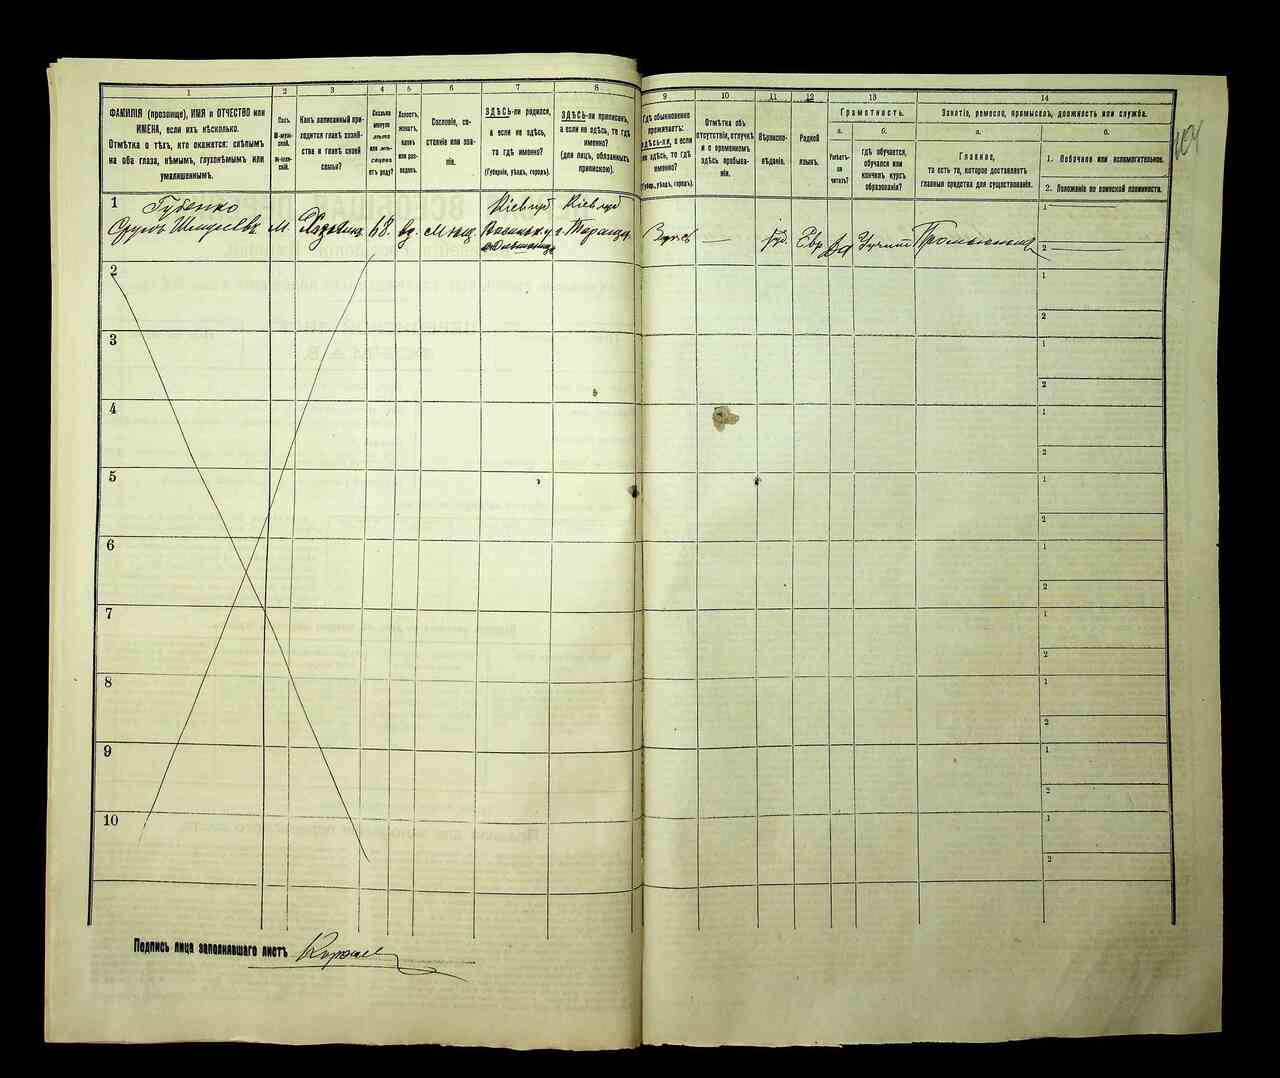 1
2
3
4
5
6
7
8
ФАМИЛІЯ (прозвище), ИМЯ и ОТЧЕСТВО или
ИМЕНА, если ихъ нѣсколько.
Отмѣтка о тѣхъ, кто окажется: слѣпымъ
на оба глаза, нѣмымъ, глухонѣмымъ или
умалишеннымъ.
Полъ.
М-муж-
ской.
Ж-жен-
скій.
Какъ записанный при-
ходится главѣ хозяй-
ства и главѣ своей
семьи?
Сколько
минуло
лѣтъ
или мѣ-
сяцевъ
отъ роду?
Холостъ,
женатъ,
вдовъ
или раз-
веденъ.
Сословіе, со-
стояніе или зва-
ніе.
ЗДѢСЬ-ли родился,
а если не здѣсь,
то гдѣ именно?
(Губернія, уѣздъ, городъ).
ЗДѢСЬ-ли приписанъ,
а если не здѣсь, то гдѣ
именно?
(для лицъ, обязанныхъ
припискою).
1
Губенко
М.
68.
вд.
Кіев губ
Кіев губ
г. Тараща
2
3
4
5
6
7
8
9
10
Подпись лица заполнявшаго листъ
9
10
11
12
13
14
Гдѣ обыкновенно
проживаетъ:
здѣсь-ли, а если
не здѣсь, то гдѣ
именно?
(Губер., уѣздъ, городъ).
Отмѣтка объ
отсутствіи, отлучкѣ
и о временномъ
здѣсь пребыва-
ніи.
Вѣроиспо-
вѣданіе.
Родной
языкъ.
Грамотность.
а.
б.
Умѣетъ-
ли
читать?
гдѣ обучается,
обучался или
кончилъ курсъ
образованія?
Занятіе, ремесло, промыселъ, должность или служба.
а.
б.
Главное,
то есть то, которое доставляетъ
главныя средства для существованія.
1. Побочное или вспомогательное.
2. Положеніе по воинской повинности.
Евр
Да
1
2
1
2
1
2
1
2
1
2
1
2
1
2
1
2
1
2
1
2